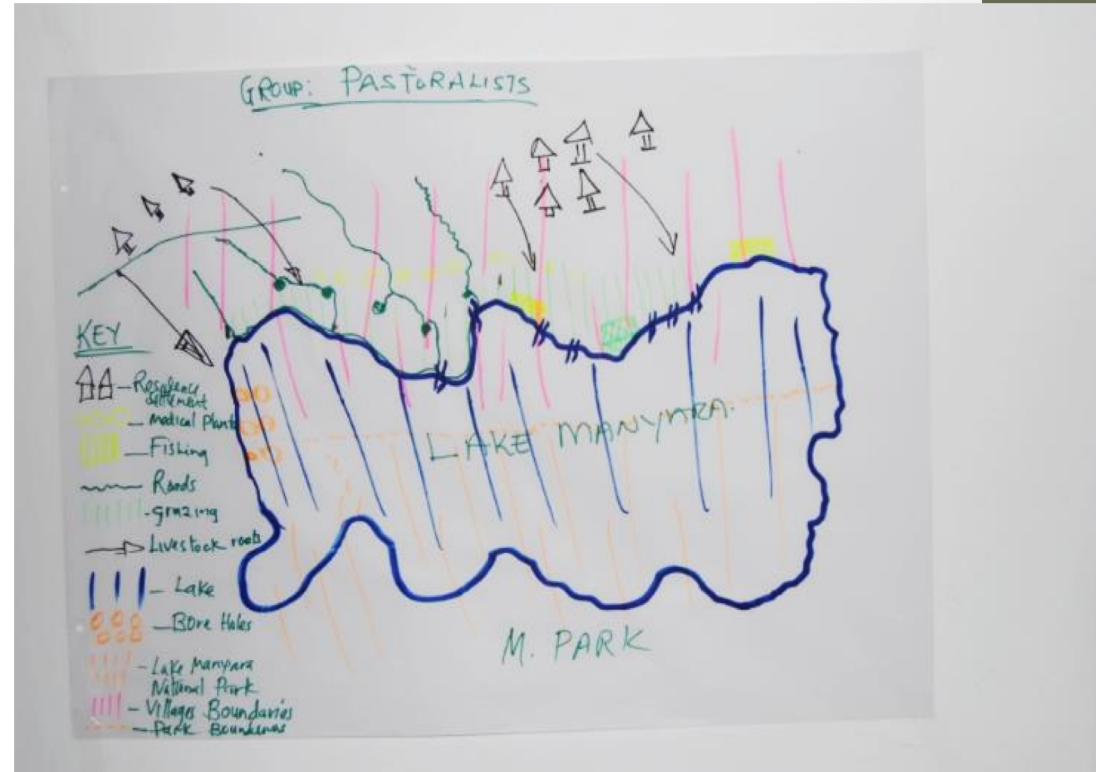 GROUP: PASTORALISTS
KEY
Residence
settlement
medical Plants
Fishing
Roads
grazing
Livestock roots
Lake
Bore Holes
Lake Manyara
National Park
Villages Boundaries
Park Boundaries
LAKE MANYARA.
M. PARK